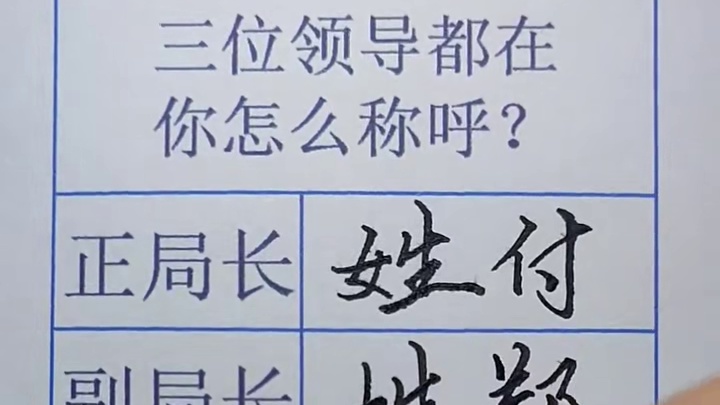 三位领导都在
你怎么称呼？
正局长 姓付
副局长 姓郑